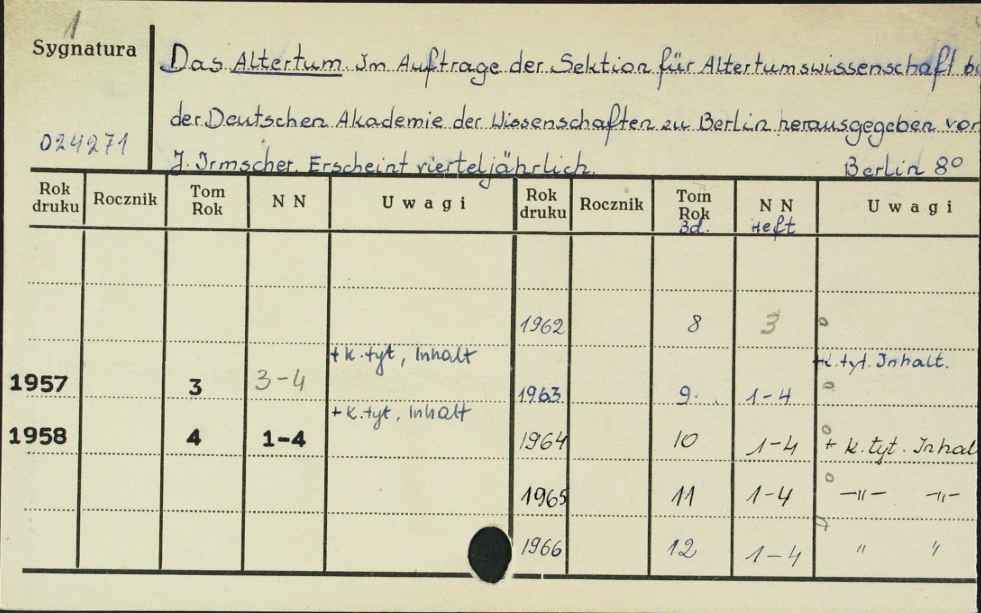 1
Sygnatura
Das Altertum. Im Auftrage der Sektion für Altertumswissenschaft
der Deutschen Akademie der Wissenschaften zu Berlin herausgegeben von
024271
J. Irmscher. Erscheint vierteljährlich. Berlin 8°
Rok druku Rocznik Tom Rok N N Uwagi Rok druku Rocznik Tom Rok Bd. N N Heft Uwagi
1962 8 3 o
+ k. tyt, Inhalt + k. tyt. Inhalt.
1957 3 3-4 1963 9. 1-4 o
+ k. tyt, Inhalt
1958 4 1-4 1964 10 1-4 o + k. tyt. Inhal
1965 11 1-4 o —"— —"—
1966 12 1-4 " "